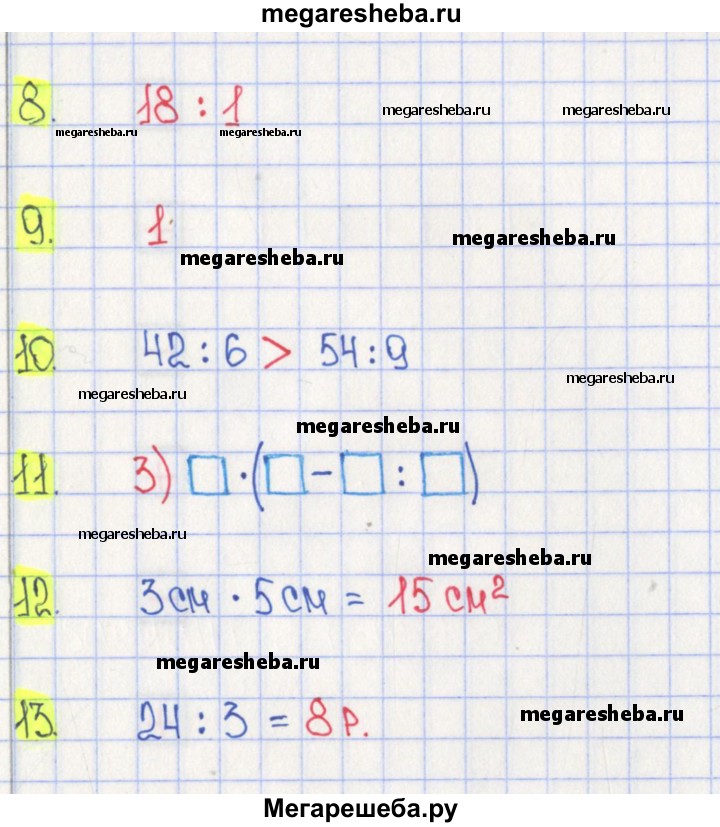 megaresheba.ru
8. 18 : 1 megaresheba.ru megaresheba.ru
megaresheba.ru megaresheba.ru
9. 1
megaresheba.ru
megaresheba.ru
10. 42 : 6 > 54 : 9
megaresheba.ru
megaresheba.ru
megaresheba.ru
11. 3) □ · (□ − □ : □)
megaresheba.ru
megaresheba.ru
12. 3 см · 5 см = 15 см²
megaresheba.ru
13. 24 : 3 = 8 р.
megaresheba.ru
Мегарешеба.ру